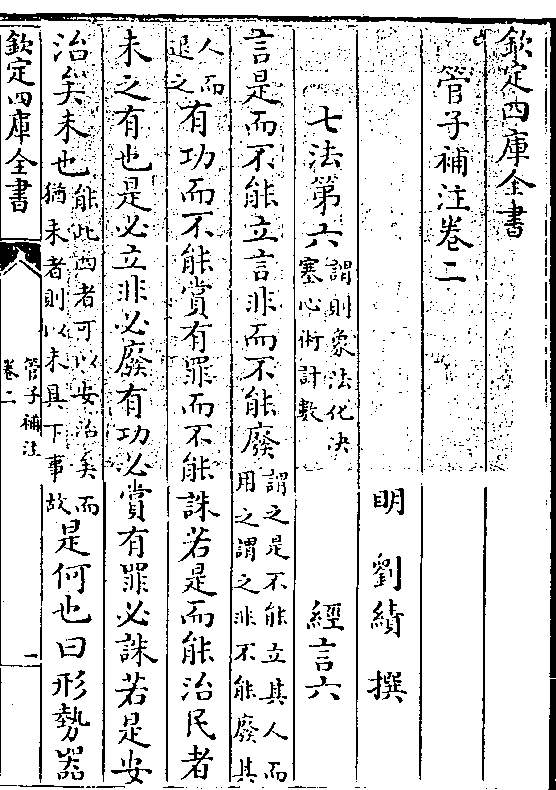 欽定四庫全書
管子補注卷二
明　劉績　撰
七法第六謂則象法化決塞心術計數　經言六
言是而不能立言非而不能廢謂之是不能立其人而用之謂之非不能廢其
人而退之有功而不能賞有罪而不能誅若是而能治民者
未之有也是必立非必廢有功必賞有罪必誅若是安
治矣未也能此四者可以安治矣而猶未者則以未具下事故是何也曰形勢器
欽定四庫全書
管子補注
卷二
一